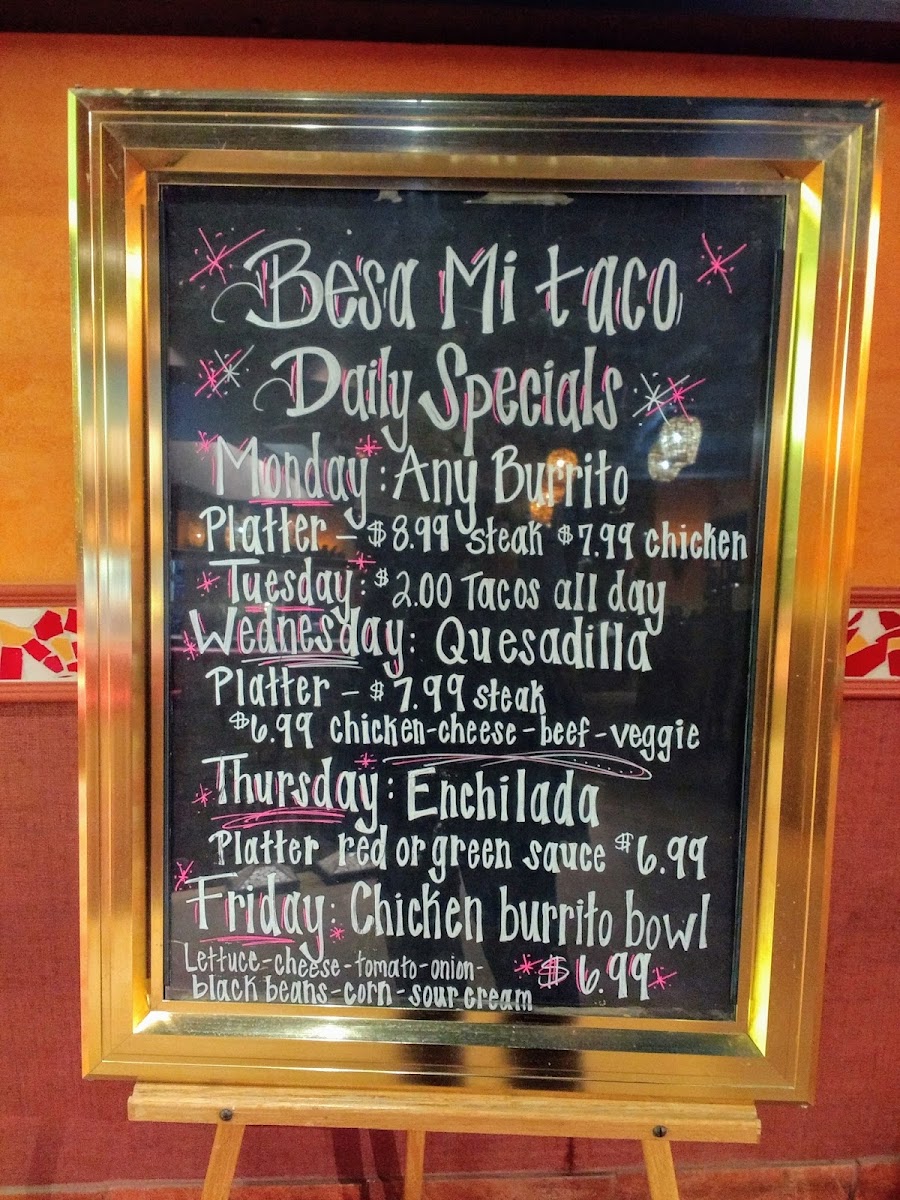 Besa Mi taco
Daily Specials
Monday: Any Burrito
Platter - $8.99 steak $7.99 chicken
Tuesday: $2.00 Tacos all day
Wednesday: Quesadilla
Platter - $7.99 steak
$6.99 chicken-cheese-beef-veggie
Thursday: Enchilada
Platter red or green sauce $6.99
Friday: Chicken burrito bowl
Lettuce-cheese-tomato-onion- $6.99
black beans-corn-sour cream